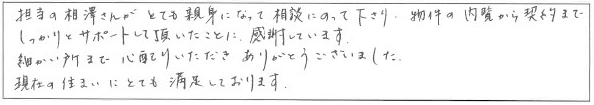 担当の相澤さんがとても親身になって相談にのって下さり、物件の内覧から契約まで
しっかりとサポートして頂いたことに、感謝しています。
細かい所まで心配りいただきありがとうございました。
現在の住まいにとても満足しております。